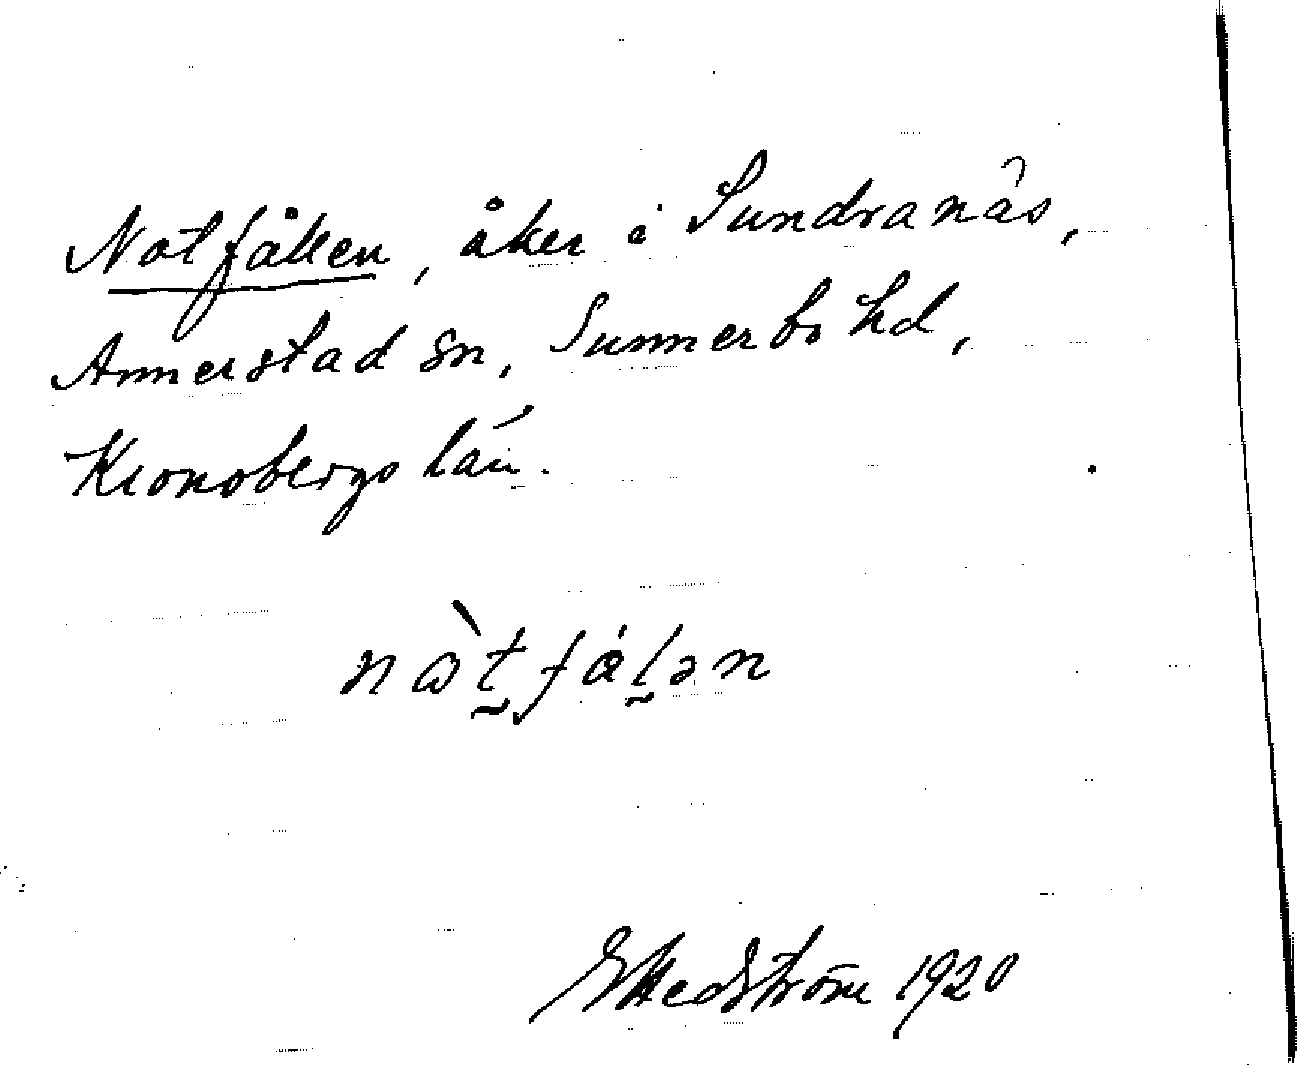 Notfållen, åker i Sundranäs,
Annerstad sn, Sunnerbo hd,
Kronobergs län.
nὼt̰fǻl̰ən
GHedström 1920